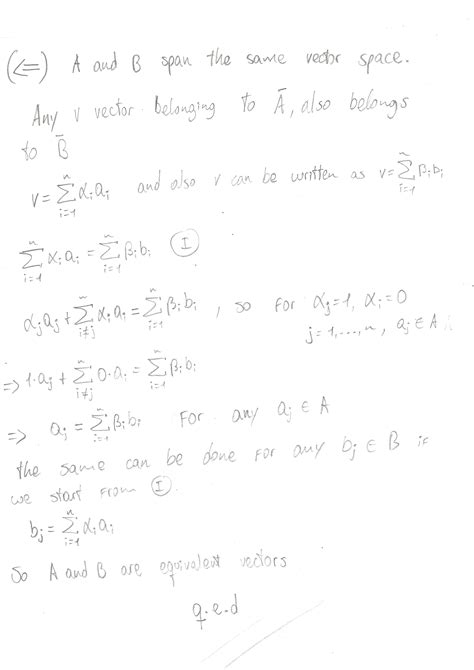 (<=) A and B span the same vector space.
Any v vector belonging to Ā, also belongs
to B̄
v = Σ_{i=1}^{n} α_i a_i and also v can be written as v = Σ_{i=1}^{n} β_i b_i
Σ_{i=1}^{n} α_i a_i = Σ_{i=1}^{n} β_i b_i (I)
α_j a_j + Σ_{i≠j}^{n} α_i a_i = Σ_{i=1}^{n} β_i b_i , so for α_j = 1, α_i = 0
j = 1, ..., n, a_j ∈ A
=> 1·a_j + Σ_{i≠j}^{n} 0·a_i = Σ_{i=1}^{n} β_i b_i
=> a_j = Σ_{i=1}^{n} β_i b_i for any a_j ∈ A
the same can be done for any b_j ∈ B if
we start from (I).
b_j = Σ_{i=1}^{n} α_i a_i
So A and B are equivalent vectors
q.e.d